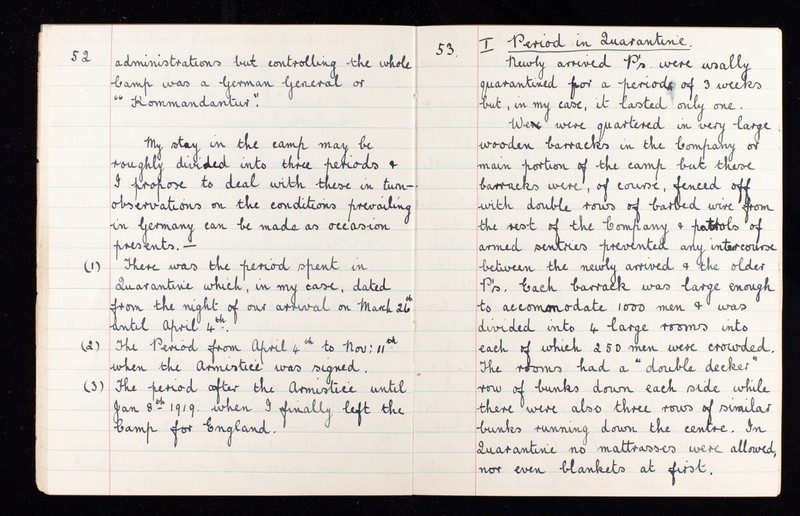 52
administrations but controlling the whole
Camp was a German General or
"Kommandantur".
My stay in the camp may be
roughly divided into three periods &
I propose to deal with these in turn—
observations on the conditions prevailing
in Germany can be made as occasion
presents. —
(1) There was the period spent in
Quarantine which, in my case, dated
from the night of our arrival on March 26th
until April 4th.
(2) The Period from April 4th to Nov: 11th
when the Armistice was signed.
(3) The period after the Armistice until
Jan 8th 1919. when I finally left the
Camp for England.
53.
I Period in Quarantine.
Newly arrived P's. were usally
quarantined for a period of 3 weeks
but, in my case, it lasted only one.
We were quartered in very large
wooden barracks in the Company or
main portion of the camp but these
barracks were, of course, fenced off
with double rows of barbed wire from
the rest of the Company & patrols of
armed sentries prevented any intercourse
between the newly arrived & the older
P's. Each barrack was large enough
to accommodate 1000 men & was
divided into 4 large rooms into
each of which 250 men were crowded.
The rooms had a "double decker"
row of bunks down each side while
there were also three rows of similar
bunks running down the centre. In
Quarantine no mattrasses were allowed,
nor even blankets at first.